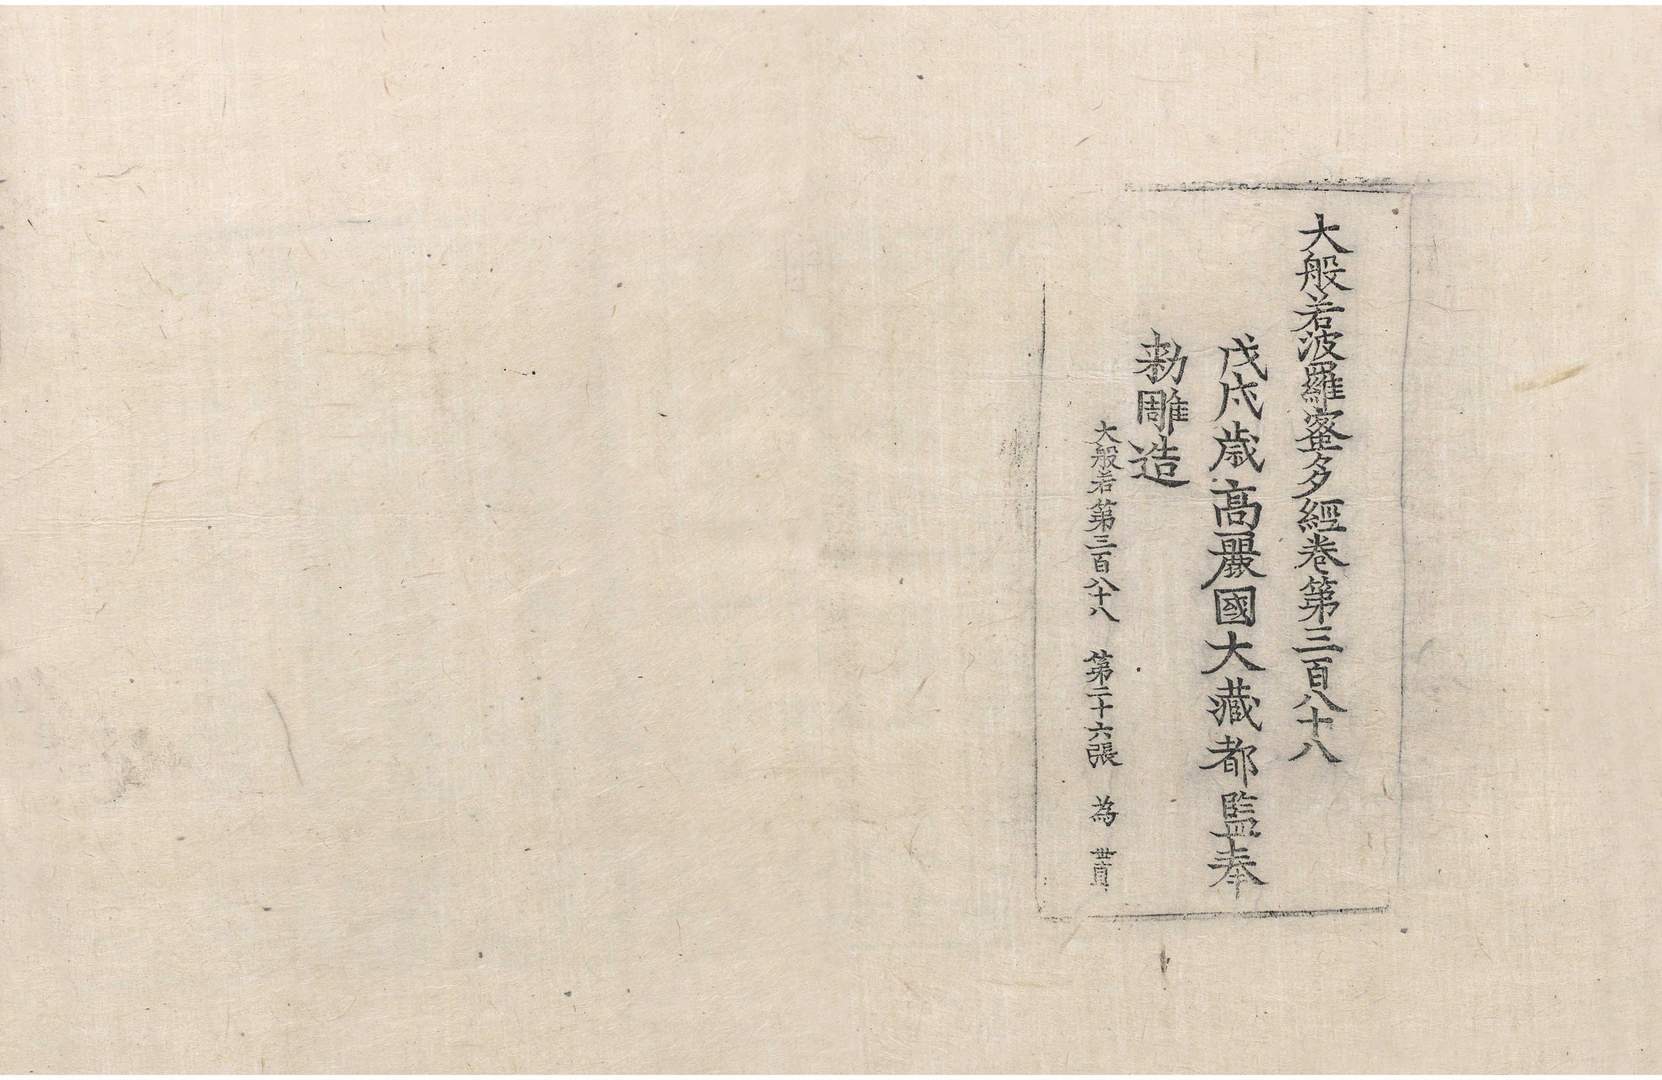 大般若波羅蜜多經卷第三百八十八
戊戌歲高麗國大藏都監奉
勅雕造
大般若第三百八十八 第二十六張 為